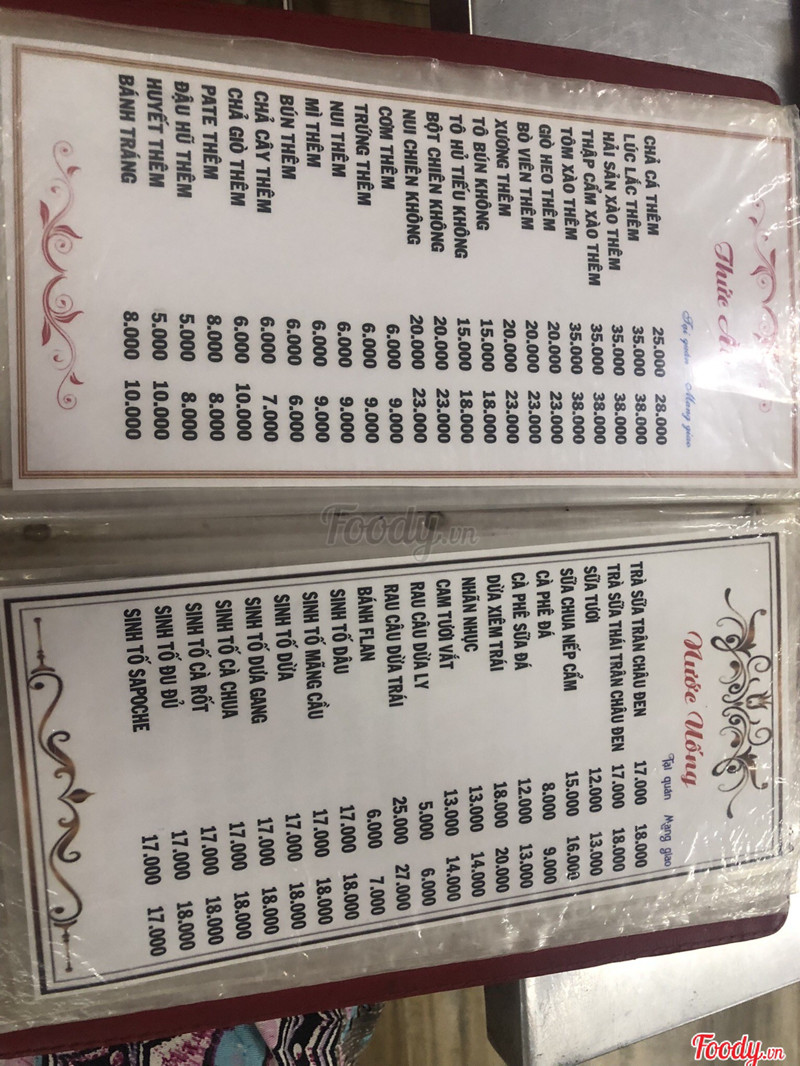 Thức Ăn
Tại quán Mang giao
CHẢ CÁ THÊM 25.000 28.000
LÚC LẮC THÊM 35.000 38.000
HẢI SẢN XÀO THÊM 35.000 38.000
THẬP CẨM XÀO THÊM 35.000 38.000
TÔM XÀO THÊM 35.000 38.000
GIÒ HEO THÊM 20.000 23.000
BÒ VIÊN THÊM 20.000 23.000
XƯƠNG THÊM 20.000 23.000
TÔ BÚN KHÔNG 15.000 18.000
TÔ HỦ TIẾU KHÔNG 15.000 18.000
BỘT CHIÊN KHÔNG 20.000 23.000
NUI CHIÊN KHÔNG 20.000 23.000
CƠM THÊM 6.000 9.000
TRỨNG THÊM 6.000 9.000
NUI THÊM 6.000 9.000
MÌ THÊM 6.000 9.000
BÚN THÊM 6.000 6.000
CHẢ CÂY THÊM 6.000 7.000
CHẢ GIÒ THÊM 6.000 10.000
PATE THÊM 8.000 8.000
ĐẬU HŨ THÊM 5.000 8.000
HUYẾT THÊM 5.000 10.000
BÁNH TRÁNG 8.000 10.000
Nước Uống
Tại quán Mang giao
TRÀ SỮA TRÂN CHÂU ĐEN 17.000 18.000
TRÀ SỮA THÁI TRÂN CHÂU ĐEN 17.000 18.000
SỮA TƯƠI 12.000 13.000
SỮA CHUA NẾP CẨM 15.000 16.000
CÀ PHÊ ĐÁ 8.000 9.000
CÀ PHÊ SỮA ĐÁ 12.000 13.000
DỪA XIÊM TRÁI 18.000 20.000
NHÃN NHỤC 13.000 14.000
CAM TƯƠI VẮT 13.000 14.000
RAU CÂU DỪA LY 5.000 6.000
RAU CÂU DỪA TRÁI 25.000 27.000
BÁNH FLAN 6.000 7.000
SINH TỐ DÂU 17.000 18.000
SINH TỐ MÃNG CẦU 17.000 18.000
SINH TỐ DỪA 17.000 18.000
SINH TỐ DƯA GANG 17.000 18.000
SINH TỐ CÀ CHUA 17.000 18.000
SINH TỐ CÀ RỐT 17.000 18.000
SINH TỐ ĐU ĐỦ 17.000 18.000
SINH TỐ SAPOCHE 17.000 17.000
Foody.vn
Foody.vn